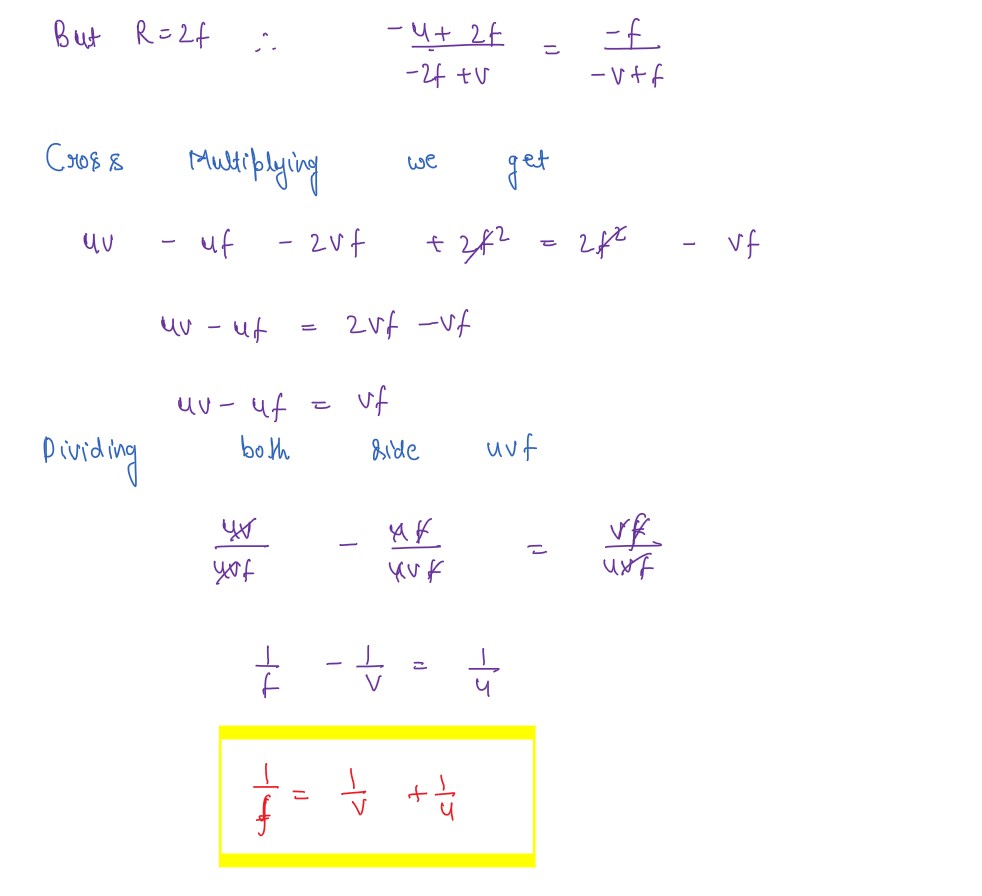 But R = 2f ∴ (-u + 2f)/(-2f + v) = -f/(-v + f)
Cross Multiplying we get
uv - uf - 2vf + 2f² = 2f² - vf
uv - uf = 2vf - vf
uv - uf = vf
Dividing both side uvf
uv/uvf - uf/uvf = vf/uvf
1/f - 1/v = 1/u
1/f = 1/v + 1/u